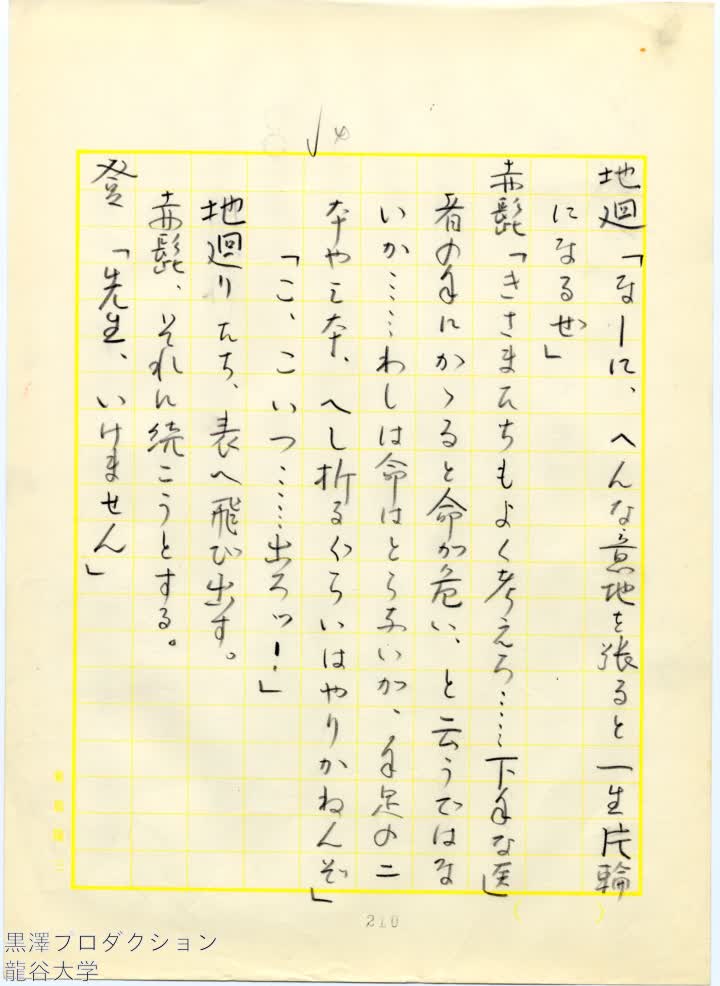 地廻「なーに、へんな意地を張ると一生片輪
になるぜ」
赤髭「きさまたちもよく考えろ……下手な医
者の手にかゝると命が危い、と云うではな
いか……わしは命はとらないが、手足の二
本や三本、へし折るくらいはやりかねんぞ」
「こ、こいつ……出ろッ！」
地廻りたち、表へ飛び出す。
赤髭、それに続こうとする。
登「先生、いけません」
210
黒澤プロダクション
龍谷大学